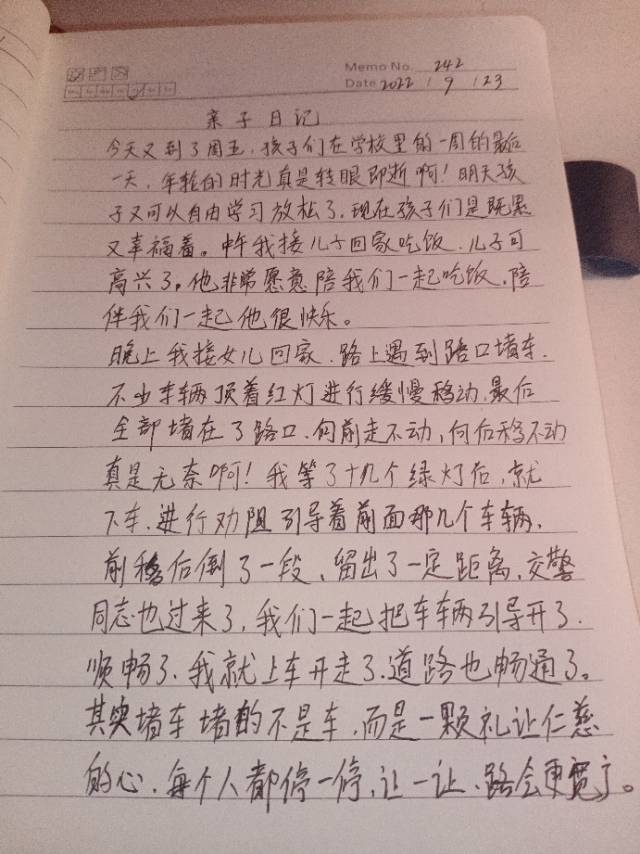 Memo No. 242
Date 2022 / 9 / 23
亲子日记
今天又到了周五,孩子们在学校里的一周的最后
一天,年轮的时光真是转眼即逝啊!明天孩
子又可以自由学习放松了,现在孩子们是既累
又幸福着。中午我接儿子回家吃饭,儿子可
高兴了。他非常愿意陪我们一起吃饭,陪
伴我们一起他很快乐。
晚上我接女儿回家,路上遇到路口堵车,
不少车辆顶着红灯进行缓慢移动,最后
全部堵在了路口,向前走不动,向后移不动
真是无奈啊!我等了十几个绿灯后,就
下车,进行劝阻引导着前面那几个车辆,
前移后倒了一段、留出了一定距离,交警
同志也过来了,我们一起把车车辆引导开了.
顺畅了,我就上车开走了,道路也畅通了。
其实堵车堵的不是车,而是一颗礼让仁慈
的心,每个人都停一停,让一让,路会更宽了。